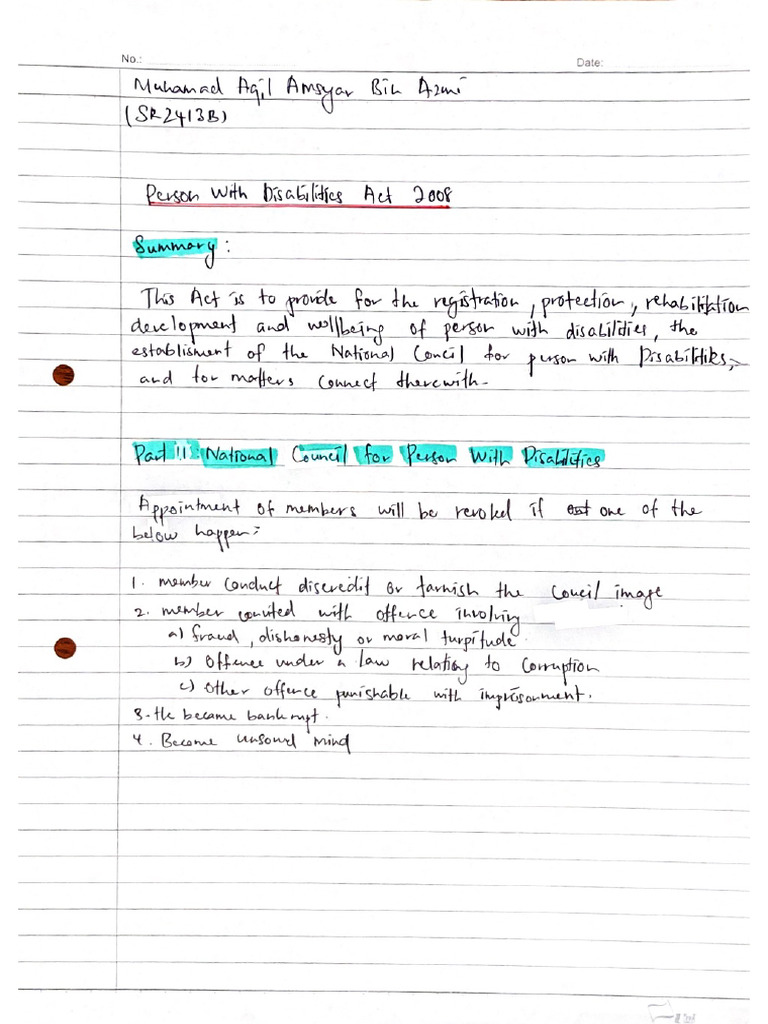 No.:
Date:
Muhamad Aqil Amsyar Bin Azmi
(SR2413B)
Person With Disabilities Act 2008
Summary :
This Act is to provide for the registration, protection, rehabilitation
development and wellbeing of person with disabilities, the
establisment of the National Concil for person with Disabilities,
and for matters connect therewith.
Part II: National Council for Person With Disabilities
Appointment of members will be revoked if one of the
below happen:
1. member conduct discredit or tarnish the Concil image
2. member convited with offence involving
a) fraud, dishonesty or moral turpitude.
b) Offence under a law relating to Corruption
c) Other offence punishable with imprisonment.
3. He became bankrupt.
4. Become unsound mind